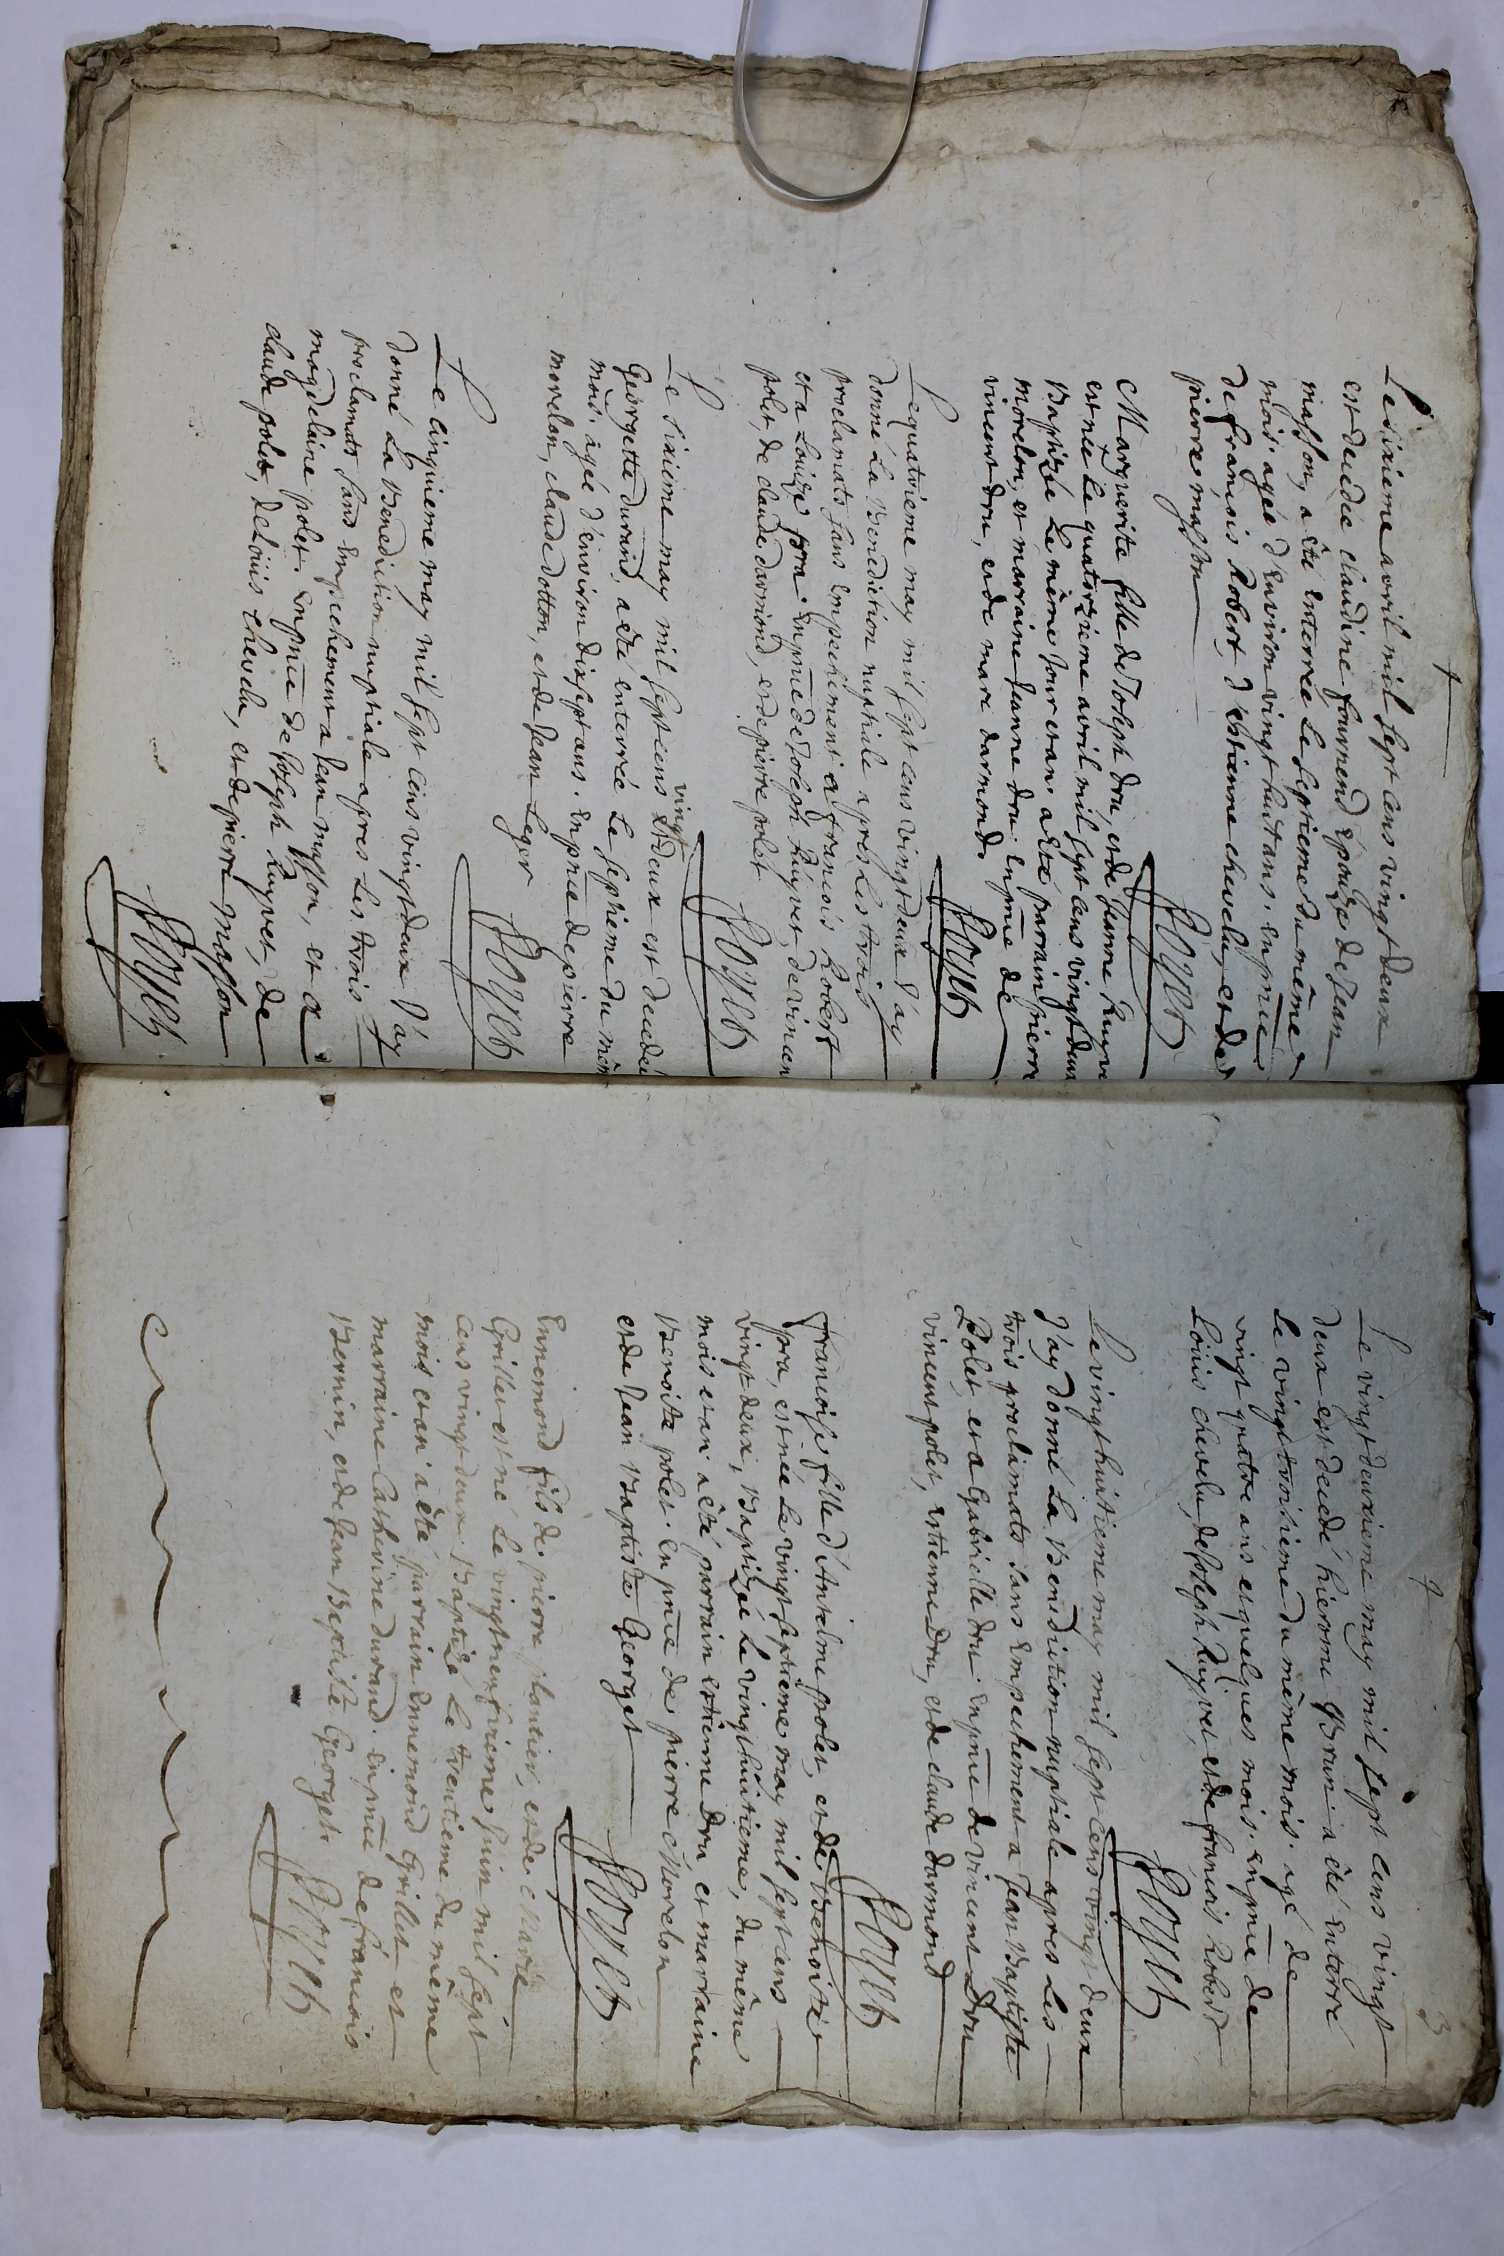 +
Le sixieme avril mil sept cens vingt deux
est decedée claudine fournend épouze de jean
masson, a été enterrée le septieme du même
mois, agée d'environ vingt huit ans. en pnce
de françois Robert, d'estienne chevelu, et de
pierre masson
Royet
Marguerite fille de Joseph dru, et de jeanne Ruyve
est née le quatorzieme avril mil sept cens vingt deux
Baptizée le même jour et an. a été parrain pierre
morelon, et marraine jeanne dru. en pnce de
vincent dru, et de marc darmond.
Royet
Le quatrieme may mil sept cens vingt deux j'ay
donné la Benediction nuptiale apres les trois
proclamats sans empechement a francois Robert
et a Louize pra. en pnce de Joseph Ruyvet, de vincen
polet, de claude darmond, et de pierre polet
Royet
Le sixieme may mil sept cens vingt deux est decedée
Georgette durand, a été enterrée le septieme du mêm
mois, agée d'environ dix sept ans. en pnce de pierre
morelon, claude dotton, et de jean Leger
Royet
Le cinquieme may mil sept cens vingt deux j'ay
donné la Benediction nuptiale apres les trois
proclamats sans empechement a jean masson, et a
magdelaine polet. en pnce de joseph Ruyvet, de
claude polet, de Loüis chevelu, et de pierre masson
Royet
3
+
Le vingt deuxieme may mil sept cens vingt
deux est decedé hierome Brun. a été enterré
le vingt troisieme du même mois. agé de
vingt quatre ans et quelques mois. en pnce de
Loüis chevelu, de joseph Ruyvet, et de francois Robert
Royet
Le vingt huitieme may mil sept cens vingt deux
J'ay donné la Benediction nuptiale apres les
trois proclamats sans empechement a jean Baptiste
Polet, et a Gabrielle dru. en pnce de vincent Dru
vincent polet, estienne Dru, et de claude darmond
Royet
francoise fille d'Antelme polet, et de Benoite
pra, est née le vingt septieme may mil sept cens
vingt deux, Baptizée le vingt huitieme, du même
mois et an. a été parrain estienne Dru et marraine
Benoite polet. en pnce de pierre Morelon
et de jean Baptiste Georget
Royet
Ennemond fils de pierre plantier, et de Marie
Grillet est né le vingt neufvieme juin mil sept
cens vingt deux. Baptizé le trentieme du même
mois et an. a été parrain Ennemond Grillet et
marraine Catherine durand. en pnce de francois
Bernin, et de jean Baptiste Georget
Royet